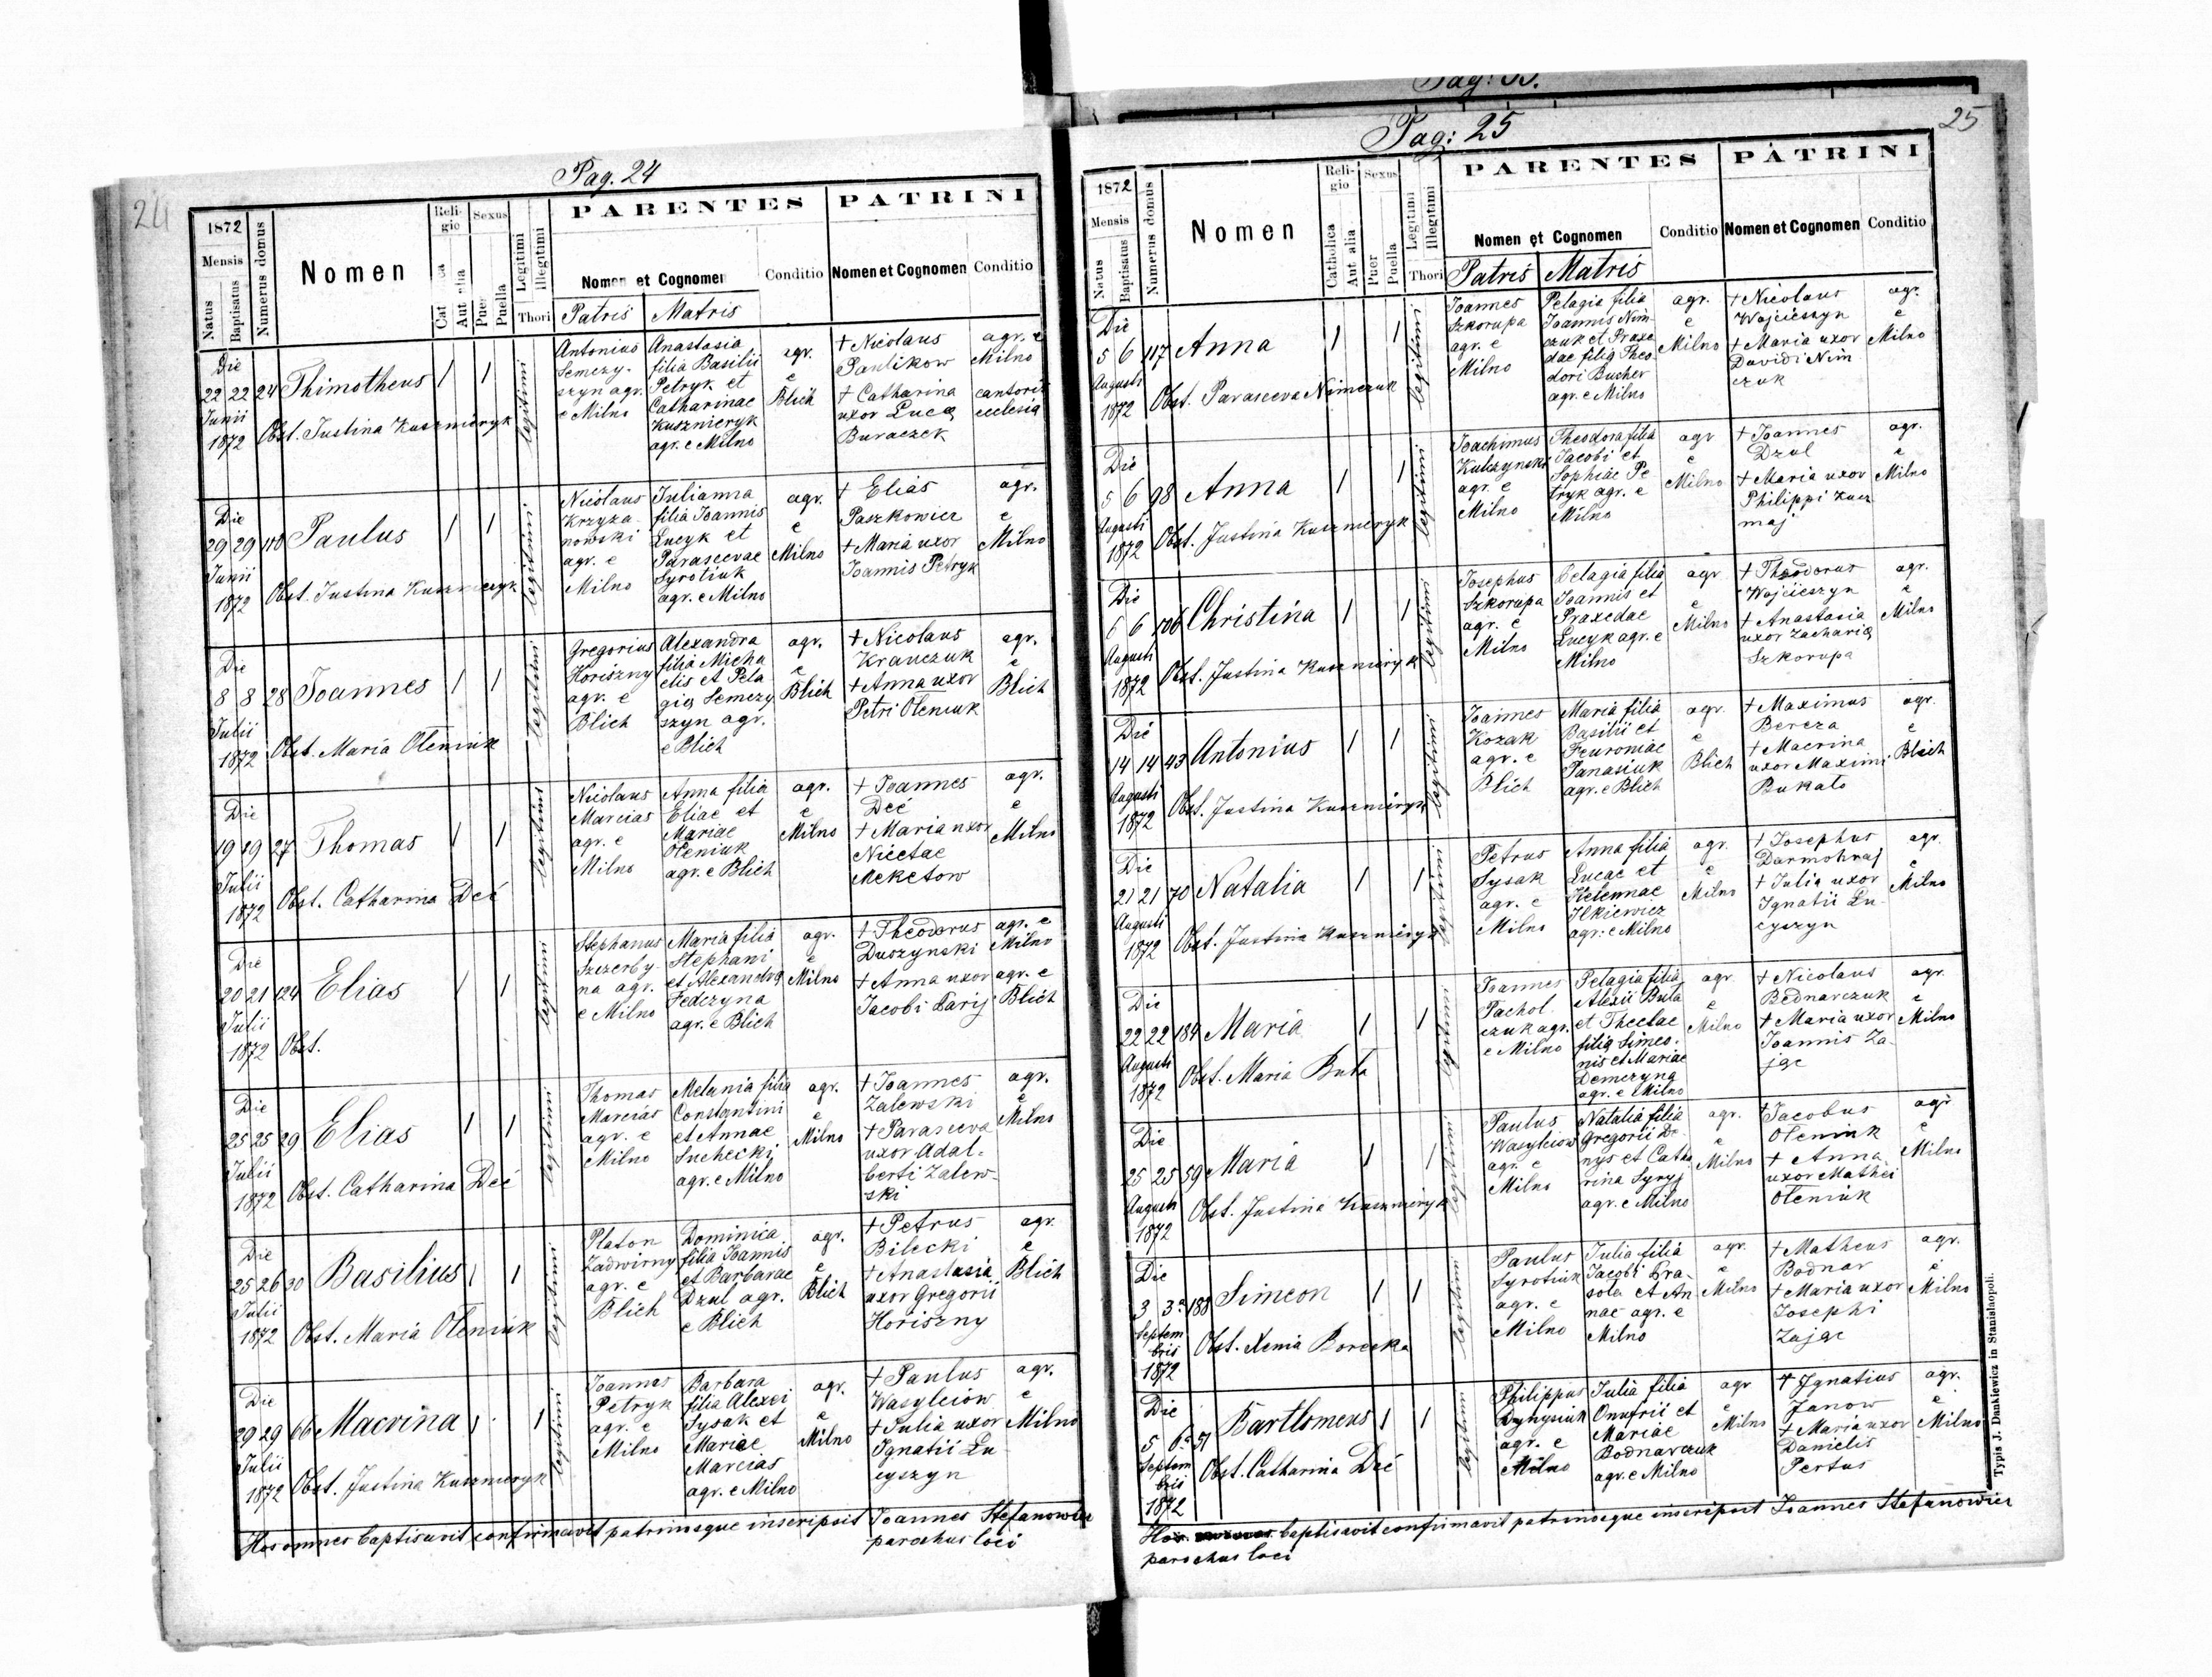 24
Pag. 24
1872
Mensis
Natus
Baptisatus
Numerus domus
Nomen
Religio
Aut alia
Sexus
Puer
Puella
Legitimi
Illegitimi
Thori
PARENTES
Nomen et Cognomen
Patris
Matris
Conditio
PATRINI
Nomen et Cognomen
Conditio
Die
22 22 24 Thimotheus 1 1
Junii
1872
Obst. Justina Kuszmiryk
legitimi
Antonius
Semczy-
szyn agr.
e Milno
Anastasia
filia Basilii
Petryk et
Catharinae
Kuszmeryk
agr. e Milno
agr.
e
Blich
+ Nicolaus
Pawlikow
+ Catharina
uxor Luca
Buraczek
agr. e
Milno
cantoris
ecclesia
Die
29 29 110 Paulus 1 1
Junii
1872
Obst. Justina
legitimi
Nicolaus
Krzyza-
nowski
agr. e
Milno
Julianna
filia Joannis
Lucyk et
Parascevae
Syrotiuk
agr. e Milno
agr.
e
Milno
+ Elias
Paszkowicz
+ Maria uxor
Joannis Petryk
agr.
e
Milno
Die
8 8 28 Joannes 1 1
Julii
1872
Obst. Maria Oleniuk
legitimi
Gregorius
Horiszny
agr. e
Blich
Alexandra
filia Micha
elis et Pela
gia Semczy
szyn agr.
e Blich
agr.
e
Blich
+ Nicolaus
Krawczuk
+ Anna uxor
Petri Oleniuk
agr.
e
Blich
Die
19 19 27 Thomas 1 1
Julii
1872
Obst. Catharina Deć
legitimi
Nicolaus
Marcias
agr. e
Milno
Anna filia
Eliae et
Mariae
Oleniuk
agr. e Blich
agr.
e
Milno
+ Joannes
Deć
+ Maria uxor
Nicetae
Meketow
agr.
e
Milno
Die
20 21 124 Elias 1 1
Julii
1872
Obst.
legitimi
Stephanus
Szczerby-
na agr.
e Milno
Maria filia
Stephani
et Alexandra
Fedczyna
agr. e Blich
agr.
e
Milno
+ Theodorus
Duszynski
+ Anna uxor
Jacobi Daryj
agr. e
Milno
agr. e
Blich
Die
25 25 29 Elias 1 1
Julii
1872
Obst. Catharina Deć
legitimi
Thomas
Marcias
agr. e
Milno
Melania filia
Constantini
et Annae
Suchecki
agr. e Milno
agr.
e
Milno
+ Joannes
Zalewski
+ Parasceva
uxor Adal-
berti Zalew-
ski
agr.
e
Milno
Die
25 26 30 Basilius 1 1
Julii
1872
Obst. Maria Oleniuk
legitimi
Platon
Zadwirny
agr. e
Blich
Dominica
filia Joannis
et Barbarae
Dzul agr.
e Blich
agr.
e
Blich
+ Petrus
Bilecki
+ Anastasia
uxor Gregorii
Horiszny
agr.
e
Blich
Die
29 29 66 Macrina 1 1
Julii
1872
Obst. Justina Kuszmeryk
legitimi
Joannes
Petryk
agr. e
Milno
Barbara
filia Alexei
Sysak et
Mariae
Marcias
agr. e Milno
agr.
e
Milno
+ Paulus
Wasylciów
+ Julia uxor
Ignatii Lu
cyszyn
agr.
e
Milno
Hos omnes baptisavit confirmavit patrinosque inscripsit Joannes Stefanowicz
parochus loci
25
Pag: 25
1872
Mensis
Natus
Baptisatus
Numerus domus
Nomen
Religio
Catholica
Aut alia
Sexus
Puer
Puella
Legitimi
Illegitimi
Thori
PARENTES
Nomen et Cognomen
Patris
Matris
Conditio
PATRINI
Nomen et Cognomen
Conditio
Die
5 6 117 Anna 1 1
Augusti
1872
Obst. Parasceva Nimczuk
legitimi
Joannes
Szkorupa
agr. e
Milno
Pelagia filia
Joannis Nim-
czuk et Praxe
dae filia Theo-
dori Bucher
agr. e Milno
agr.
e
Milno
+ Nicolaus
Wojcieszyn
+ Maria uxor
Davidi Nim
czuk
agr.
e
Milno
Die
5 6 98 Anna 1 1
Augusti
1872
Obst. Justina Kuszmeryk
legitimi
Joachimus
Kulczynski
agr. e
Milno
Theodora filia
Jacobi et
Sophiae Pe
tryk agr. e
Milno
agr
e
Milno
+ Joannes
Dzul
+ Maria uxor
Philippi Kucz
maj
agr.
e
Milno
Die
6 106 Christina 1 1
Augusti
1872
Obst. Justina Kuszmiryk
legitimi
Josephus
Szkorupa
agr. e
Milno
Pelagia filia
Joannis et
Praxedae
Lucyk agr. e
Milno
agr
e
Milno
+ Theodorus
Wojcieszyn
+ Anastasia
uxor Zacharia
Szkorupa
agr.
e
Milno
Die
14 14 43 Antonius 1 1
Augusti
1872
Obst. Justina Kuszmiryk
legitimi
Joannes
Kozak
agr. e
Blich
Maria filia
Basilii et
Feuroniae
Panasiuk
agr. e Blich
agr.
e
Blich
+ Maximus
Bereza
+ Macrina
uxor Maximi
Bukato
agr.
e
Blich
Die
21 21 70 Natalia 1 1
Augusti
1872
Obst. Justina Kuszmiryk
legitimi
Petrus
Sysak
agr. e
Milno
Anna filia
Lucae et
Helennae
Ilkiewicz
agr. e Milno
agr.
e
Milno
+ Josephus
Darmohraj
+ Julia uxor
Ignatii Lu-
cyszyn
agr.
e
Milno
Die
22 22 184 Maria 1 1
Augusti
1872
Obst. Maria Buta
legitimi
Joannes
Pachol
czuk agr.
e Milno
Pelagia filia
Alexii Buta
et Theclae
filia Simeo-
nis et Mariae
Demczyna
agr. e Milno
agr.
e
Milno
+ Nicolaus
Bednarczuk
+ Maria uxor
Joannis Za-
jac
agr.
e
Milno
Die
25 25 59 Maria 1 1
Augusti
1872
Obst. Justina Kuszmiryk
legitimi
Paulus
Wasylciow
agr. e
Milno
Natalia filia
Gregorii De-
nys et Catha
rina Syryj
agr. e Milno
agr.
e
Milno
+ Jacobus
Oleniuk
+ Anna
uxor Mathei
Oleniuk
agr
e
Milno
Die
3 3 188 Simeon 1 1
Septem
bris
1872
Obst. Xenia Borecka
legitimi
Paulus
Syrotiuk
agr. e
Milno
Julia filia
Jacobi Bra-
sola et An-
nae agr. e
Milno
agr.
e
Milno
+ Matheus
Bodnar
+ Maria uxor
Josephi
Zajac
agr.
e
Milno
Die
5 6 51 Bartlomeus 1 1
Septem
bris
1872
Obst. Catharina Deć
legitimi
Philippus
Dynysiuk
agr. e
Milno
Julia filia
Onufrii et
Mariae
Bodnarczuk
agr. e Milno
agr
e
Milno
+ Ignatius
Janow
+ Maria uxor
Danielis
Pertus
agr.
e
Milno
Hos baptisavit confirmavit patrinosque inscripsit Joannes Stefanowicz
parochus loci
Typis J. Dankiewicz in Stanislaopoli.